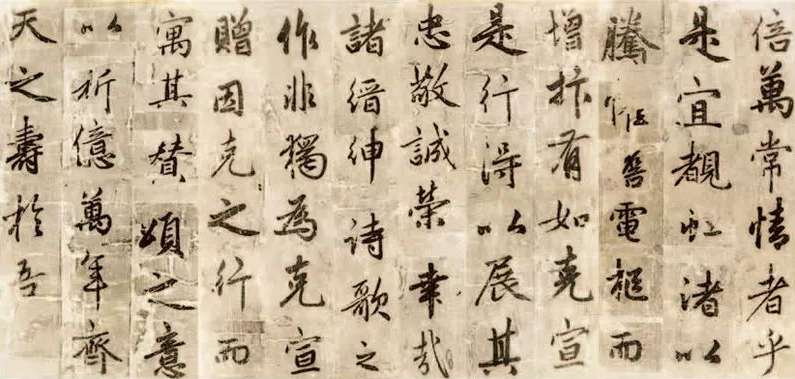 倍萬常情者乎
是宜覩虹渚以
騰電樞而
增抃有如克宣
是行得以展其
忠敬誠榮幸哉
諸縉紳詩歌之
作非獨為克宣
贈因克之行而
寓其贊頌之意
以祈億萬年齊
天之壽於吾